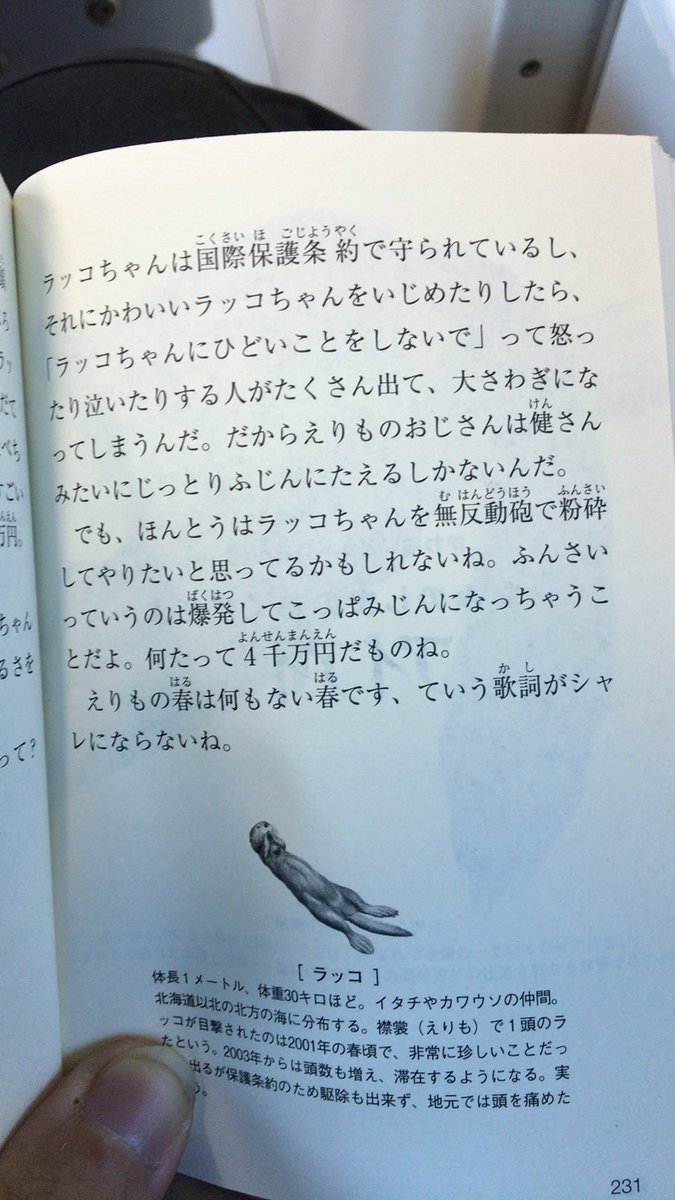 ラッコちゃんは国際保護条約で守られているし、
それにかわいいラッコちゃんをいじめたりしたら、
「ラッコちゃんにひどいことをしないで」って怒っ
たり泣いたりする人がたくさん出て、大さわぎにな
ってしまうんだ。だからえりものおじさんは健さん
みたいにじっとりふじんにたえるしかないんだ。
でも、ほんとうはラッコちゃんを無反動砲で粉砕
してやりたいと思ってるかもしれないね。ふんさい
っていうのは爆発してこっぱみじんになっちゃうこ
とだよ。何たって4千万円だものね。
えりもの春は何もない春です、ていう歌詞がシャ
レにならないね。
[ラッコ]
体長1メートル、体重30キロほど。イタチやカワウソの仲間。
北海道以北の北方の海に分布する。襟裳(えりも)で1頭のラ
ッコが目撃されたのは2001年の春頃で、非常に珍しいことだっ
たという。2003年からは頭数も増え、滞在するようになる。実
出るが保護条約のため駆除も出来ず、地元では頭を痛めた
う。
231